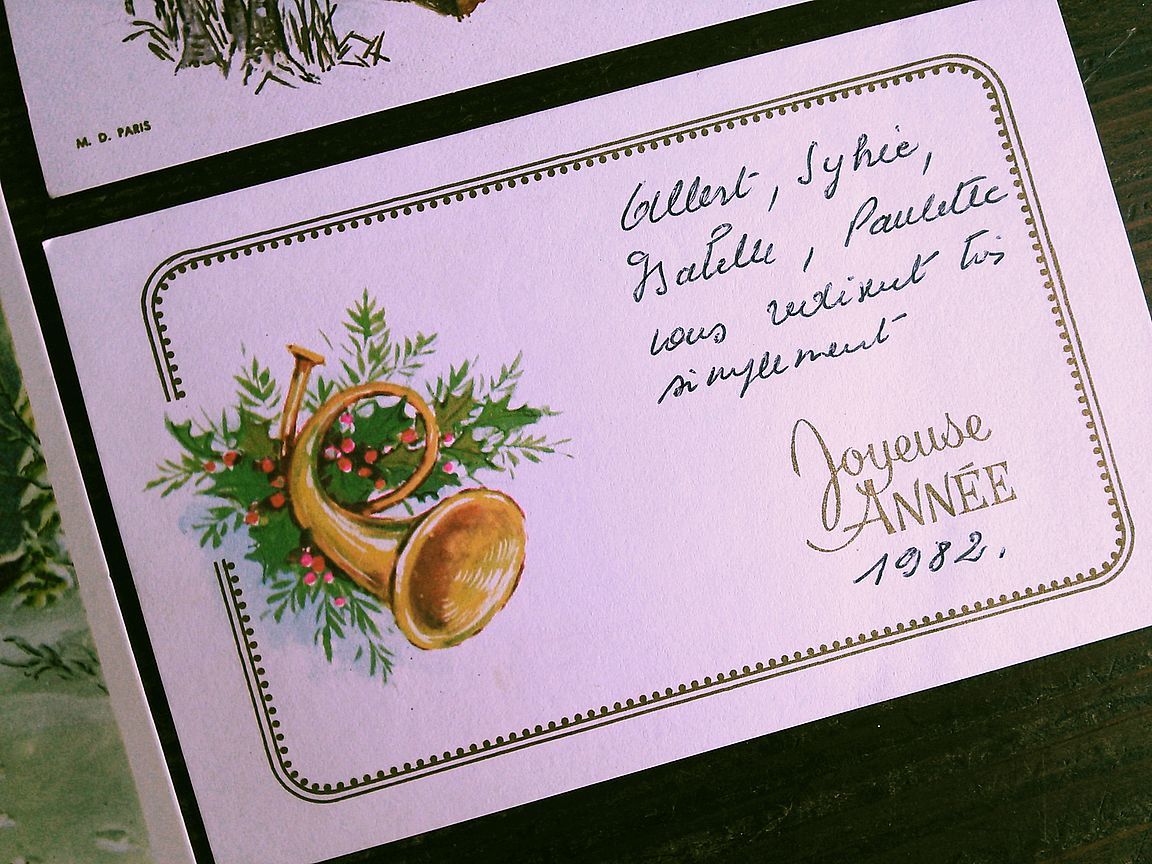 M. D. PARIS
Albert, Sylvie,
Isabelle, Paulette
vous redisent très
simplement
Joyeuse
ANNÉE
1982.